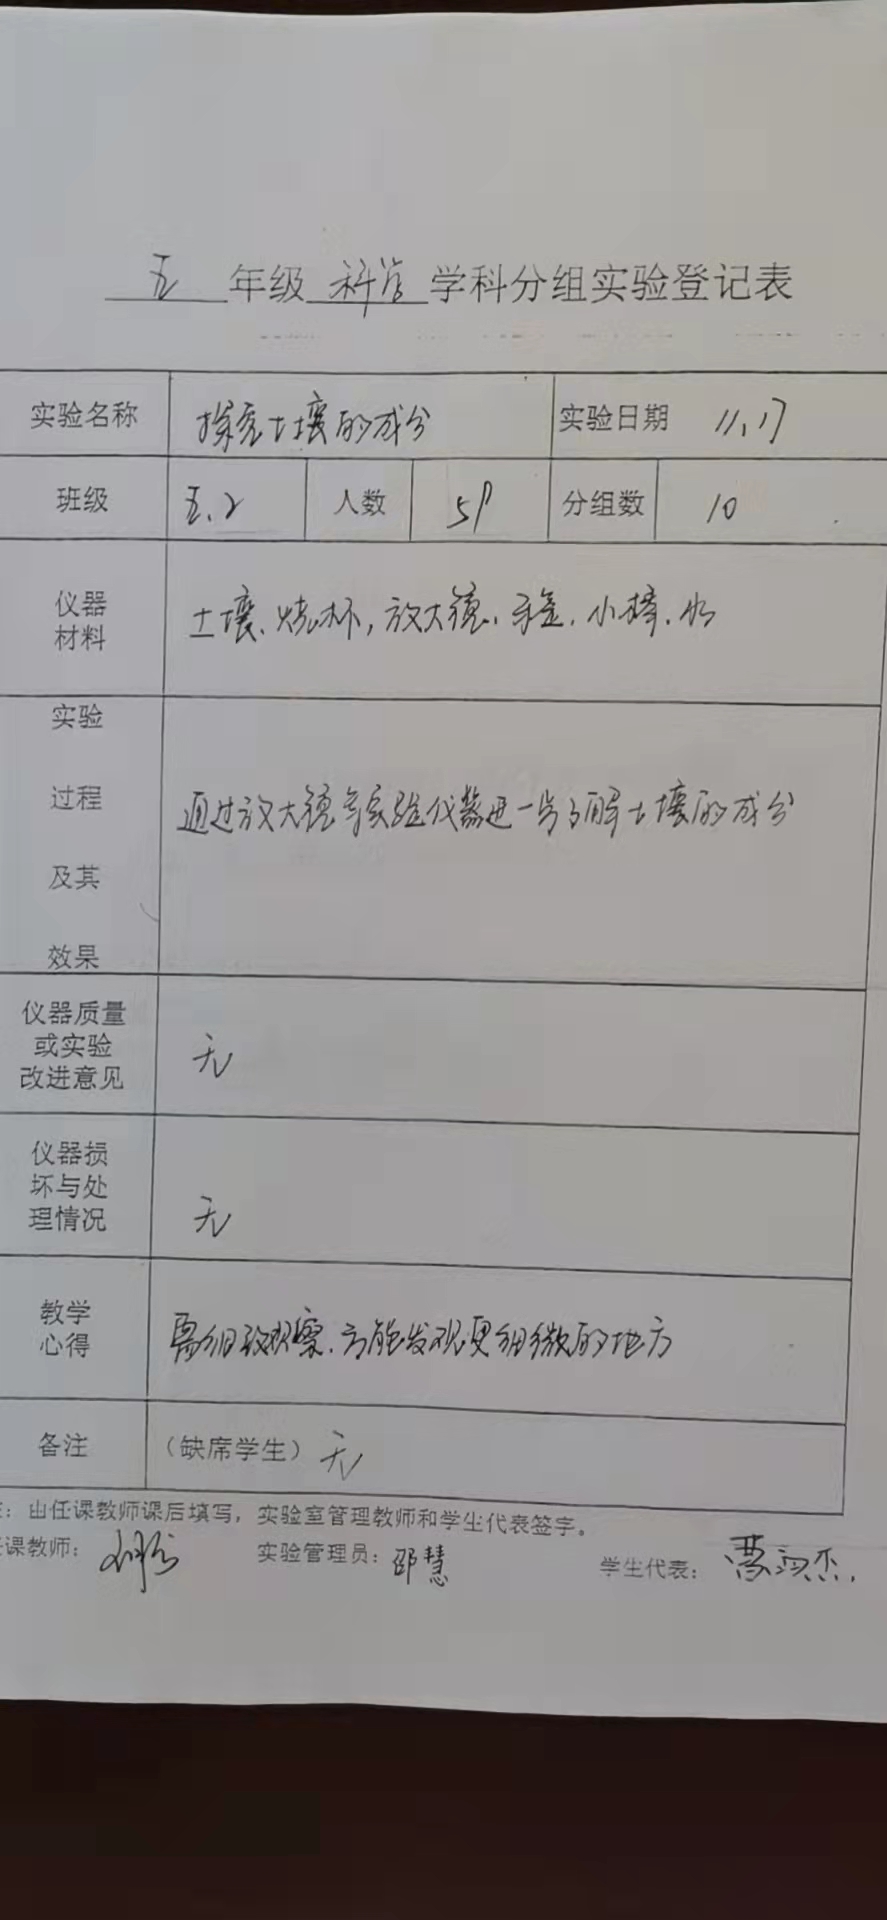 五年级科学学科分组实验登记表
实验名称 探究土壤的成分 实验日期 11.17
班级 五.2 人数 分组数 10
仪器
材料
土壤、烧杯,放大镜、小棒、水
实验
过程
及其
效果
通过放大镜等实验仪器进一步了解土壤的成分
仪器质量
或实验
改进意见
无
仪器损
坏与处
理情况
无
教学
心得
需细致观察.方能发现更细微的地方
备注 (缺席学生) 无
:由任课教师课后填写,实验室管理教师和学生代表签字。
课教师: 实验管理员:邵慧 学生代表: